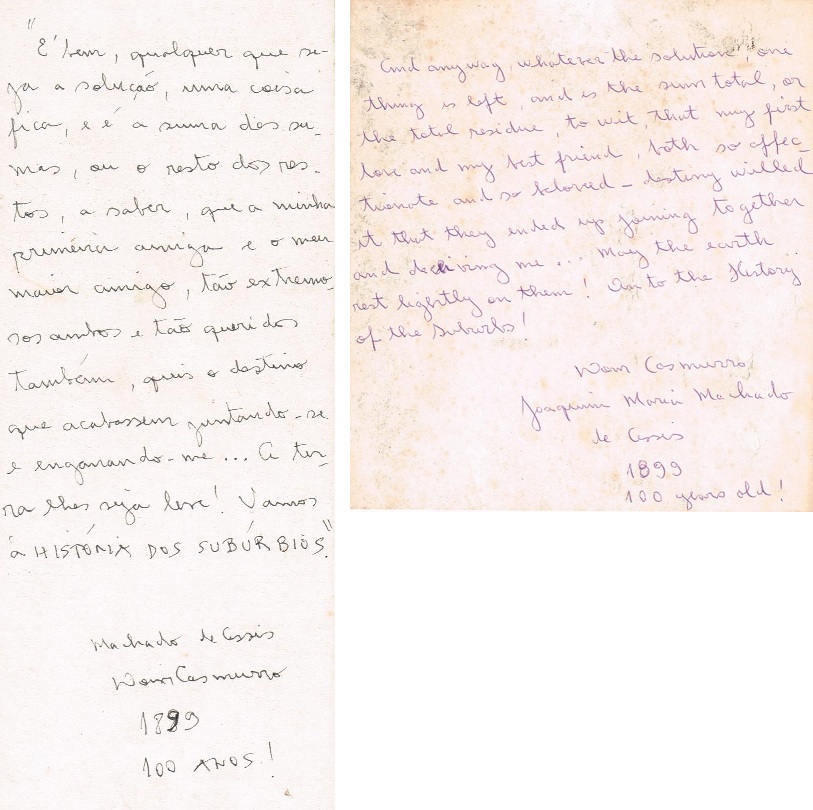 "
E' bem, qualquer que se-
ja a solução, uma coisa
fica, e é a suma das su-
mas, ou o resto dos res-
tos, a saber, que a minha
primeira amiga e o meu
maior amigo, tão extremo-
sos ambos e tão queridos
também, quis o destino
que acabassem juntando-se
e enganando-me... A ter-
ra lhes seja leve! Vamos
à HISTÓRIA DOS SUBÚRBIOS."
Machado de Assis
Dom Casmurro
1899
100 ANOS!
And anyway, whatever the solution, one
thing is left, and is the sum total, or
the total residue, to wit, that my first
love and my best friend, both so affec-
tionate and so beloved - destiny willed
it that they ended up joining together
and deceiving me... May the earth
rest lightly on them! On to the History
of the Suburbs!
Dom Casmurro
Joaquim Maria Machado
de Assis
1899
100 years old!